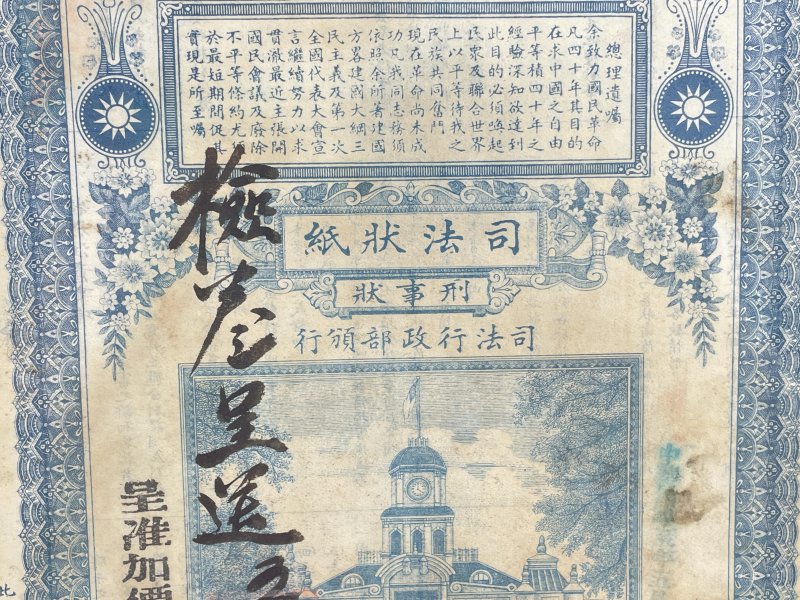 總理遺囑
余致力國民革命
凡四十年其目的
在求中國之自由
平等積四十年之
經驗深知欲達到
此目的必須喚起
民眾及聯合世界
上以平等待我之
民族共同奮鬥
現在革命尚未成
功凡我同志務須
依照余所著建國
方略建國大綱三
民主義及第一次
全國代表大會宣
言繼續努力以求
貫澈最近主張開
國民會議及廢除
不平等條約尤須
於最短期間促其
實現是所至囑
司法狀紙
刑事狀
司法行政部頒行
檢卷呈送
呈准加價